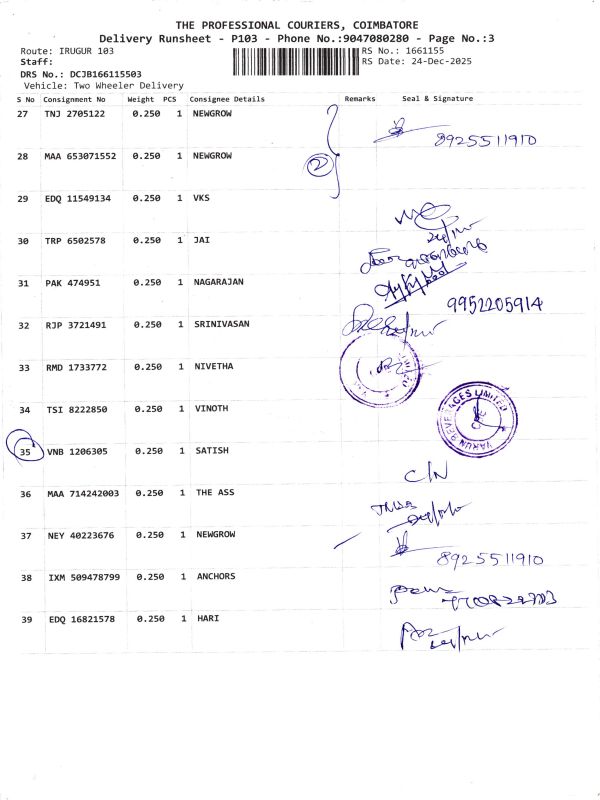 THE PROFESSIONAL COURIERS, COIMBATORE
Delivery Runsheet - P103 - Phone No.:9047080280 - Page No.:3
Route: IRUGUR 103
RS No.: 1661155
Staff:
RS Date: 24-Dec-2025
DRS No.: DCJB166115503
Vehicle: Two Wheeler Delivery
S No Consignment No Weight PCS Consignee Details Remarks Seal & Signature
27 TNJ 2705122 0.250 1 NEWGROW
8925511910
28 MAA 653071552 0.250 1 NEWGROW
2
29 EDQ 11549134 0.250 1 VKS
30 TRP 6502578 0.250 1 JAI
31 PAK 474951 0.250 1 NAGARAJAN
9952205914
32 RJP 3721491 0.250 1 SRINIVASAN
33 RMD 1733772 0.250 1 NIVETHA
34 TSI 8222850 0.250 1 VINOTH
VARUN BEVERAGES LIMITED
35 VNB 1206305 0.250 1 SATISH
C/N
36 MAA 714242003 0.250 1 THE ASS
37 NEY 40223676 0.250 1 NEWGROW
8925511910
38 IXM 509478799 0.250 1 ANCHORS
39 EDQ 16821578 0.250 1 HARI